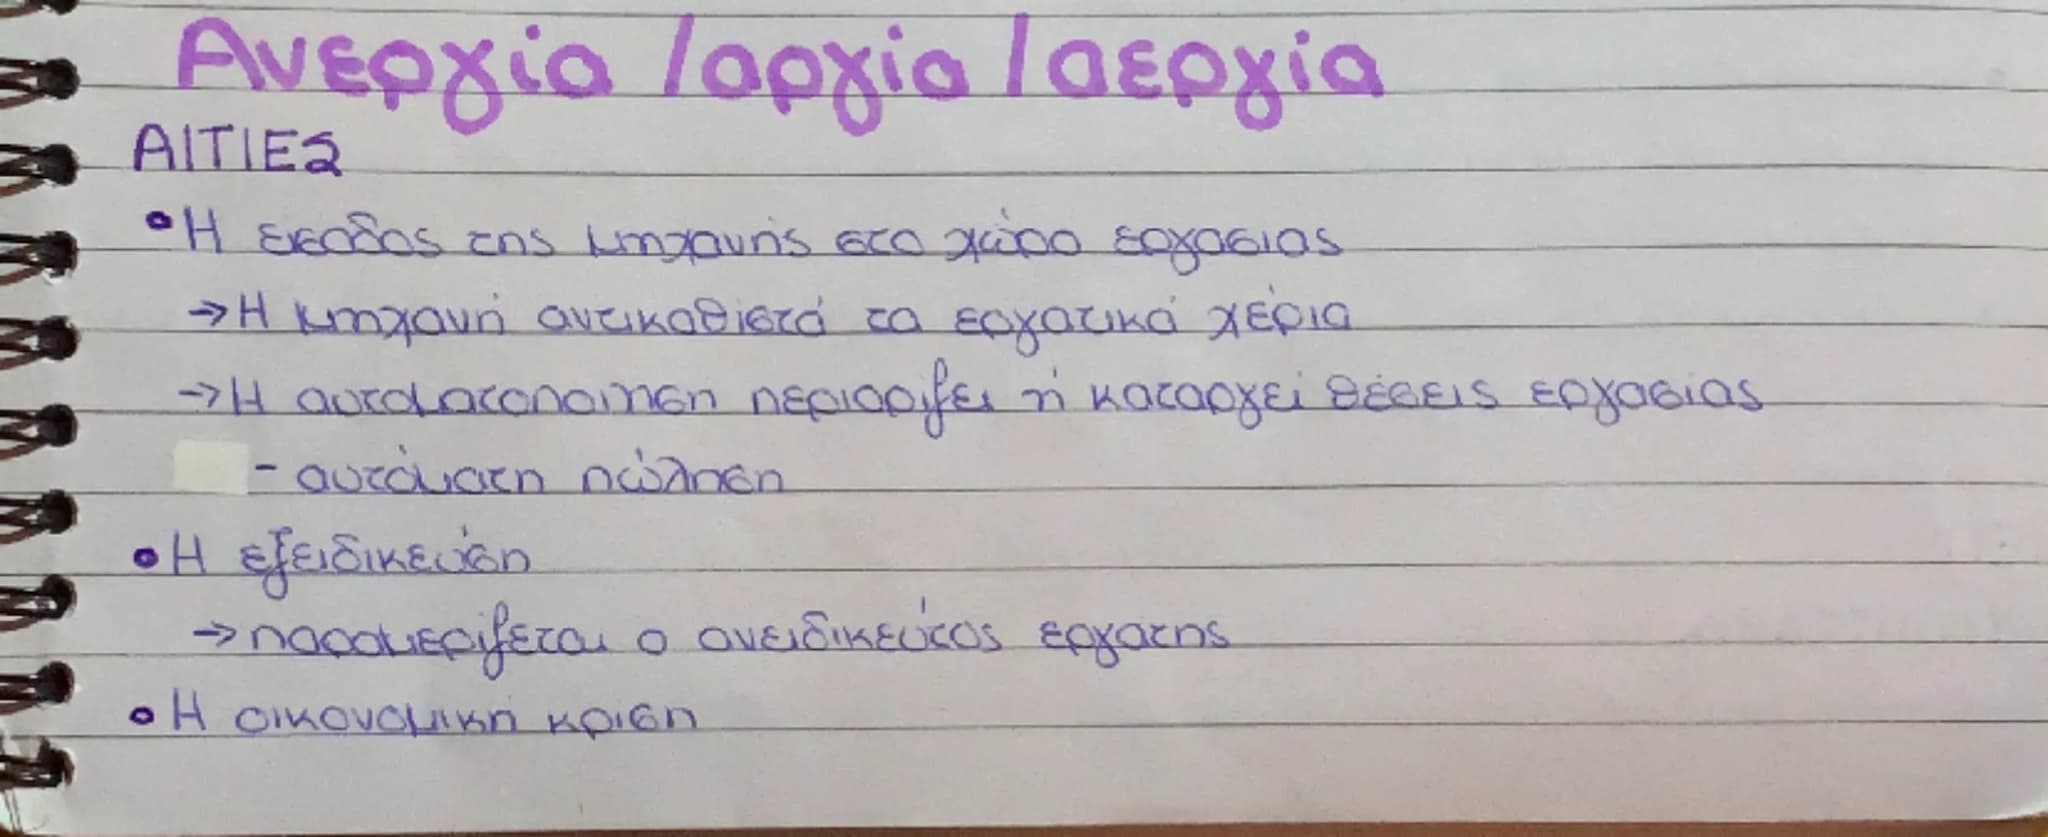 Ανεργία / αργία / αεργία
ΑΙΤΙΕΣ
• Η εισοδος της μηχανής στο χώρο εργασιας
→ Η μηχανή αντικαθιστά τα εργατικά χέρια
→ Η αυτοματοποιηση περιοριζει ή καταργεί θέσεις εργασίας
- αυτόματη πώληση
• Η εξειδικεύση
→ παραμερίζεται ο ανειδικεύτος εργατης
• Η οικονομικη κριση